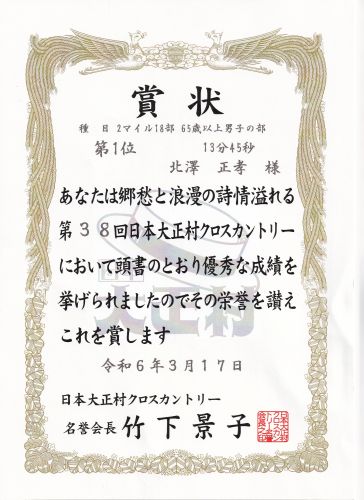 賞状
種 目 2マイル18部 65歳以上男子の部
第1位 13分45秒
北澤 正孝 様
あなたは郷愁と浪漫の詩情溢れる
第38回日本大正村クロスカントリー
において頭書のとおり優秀な成績を
挙げられましたのでその栄誉を讃え
これを賞します
大正村
令和6年3月17日
日本大正村クロスカントリー
名誉会長 竹下景子